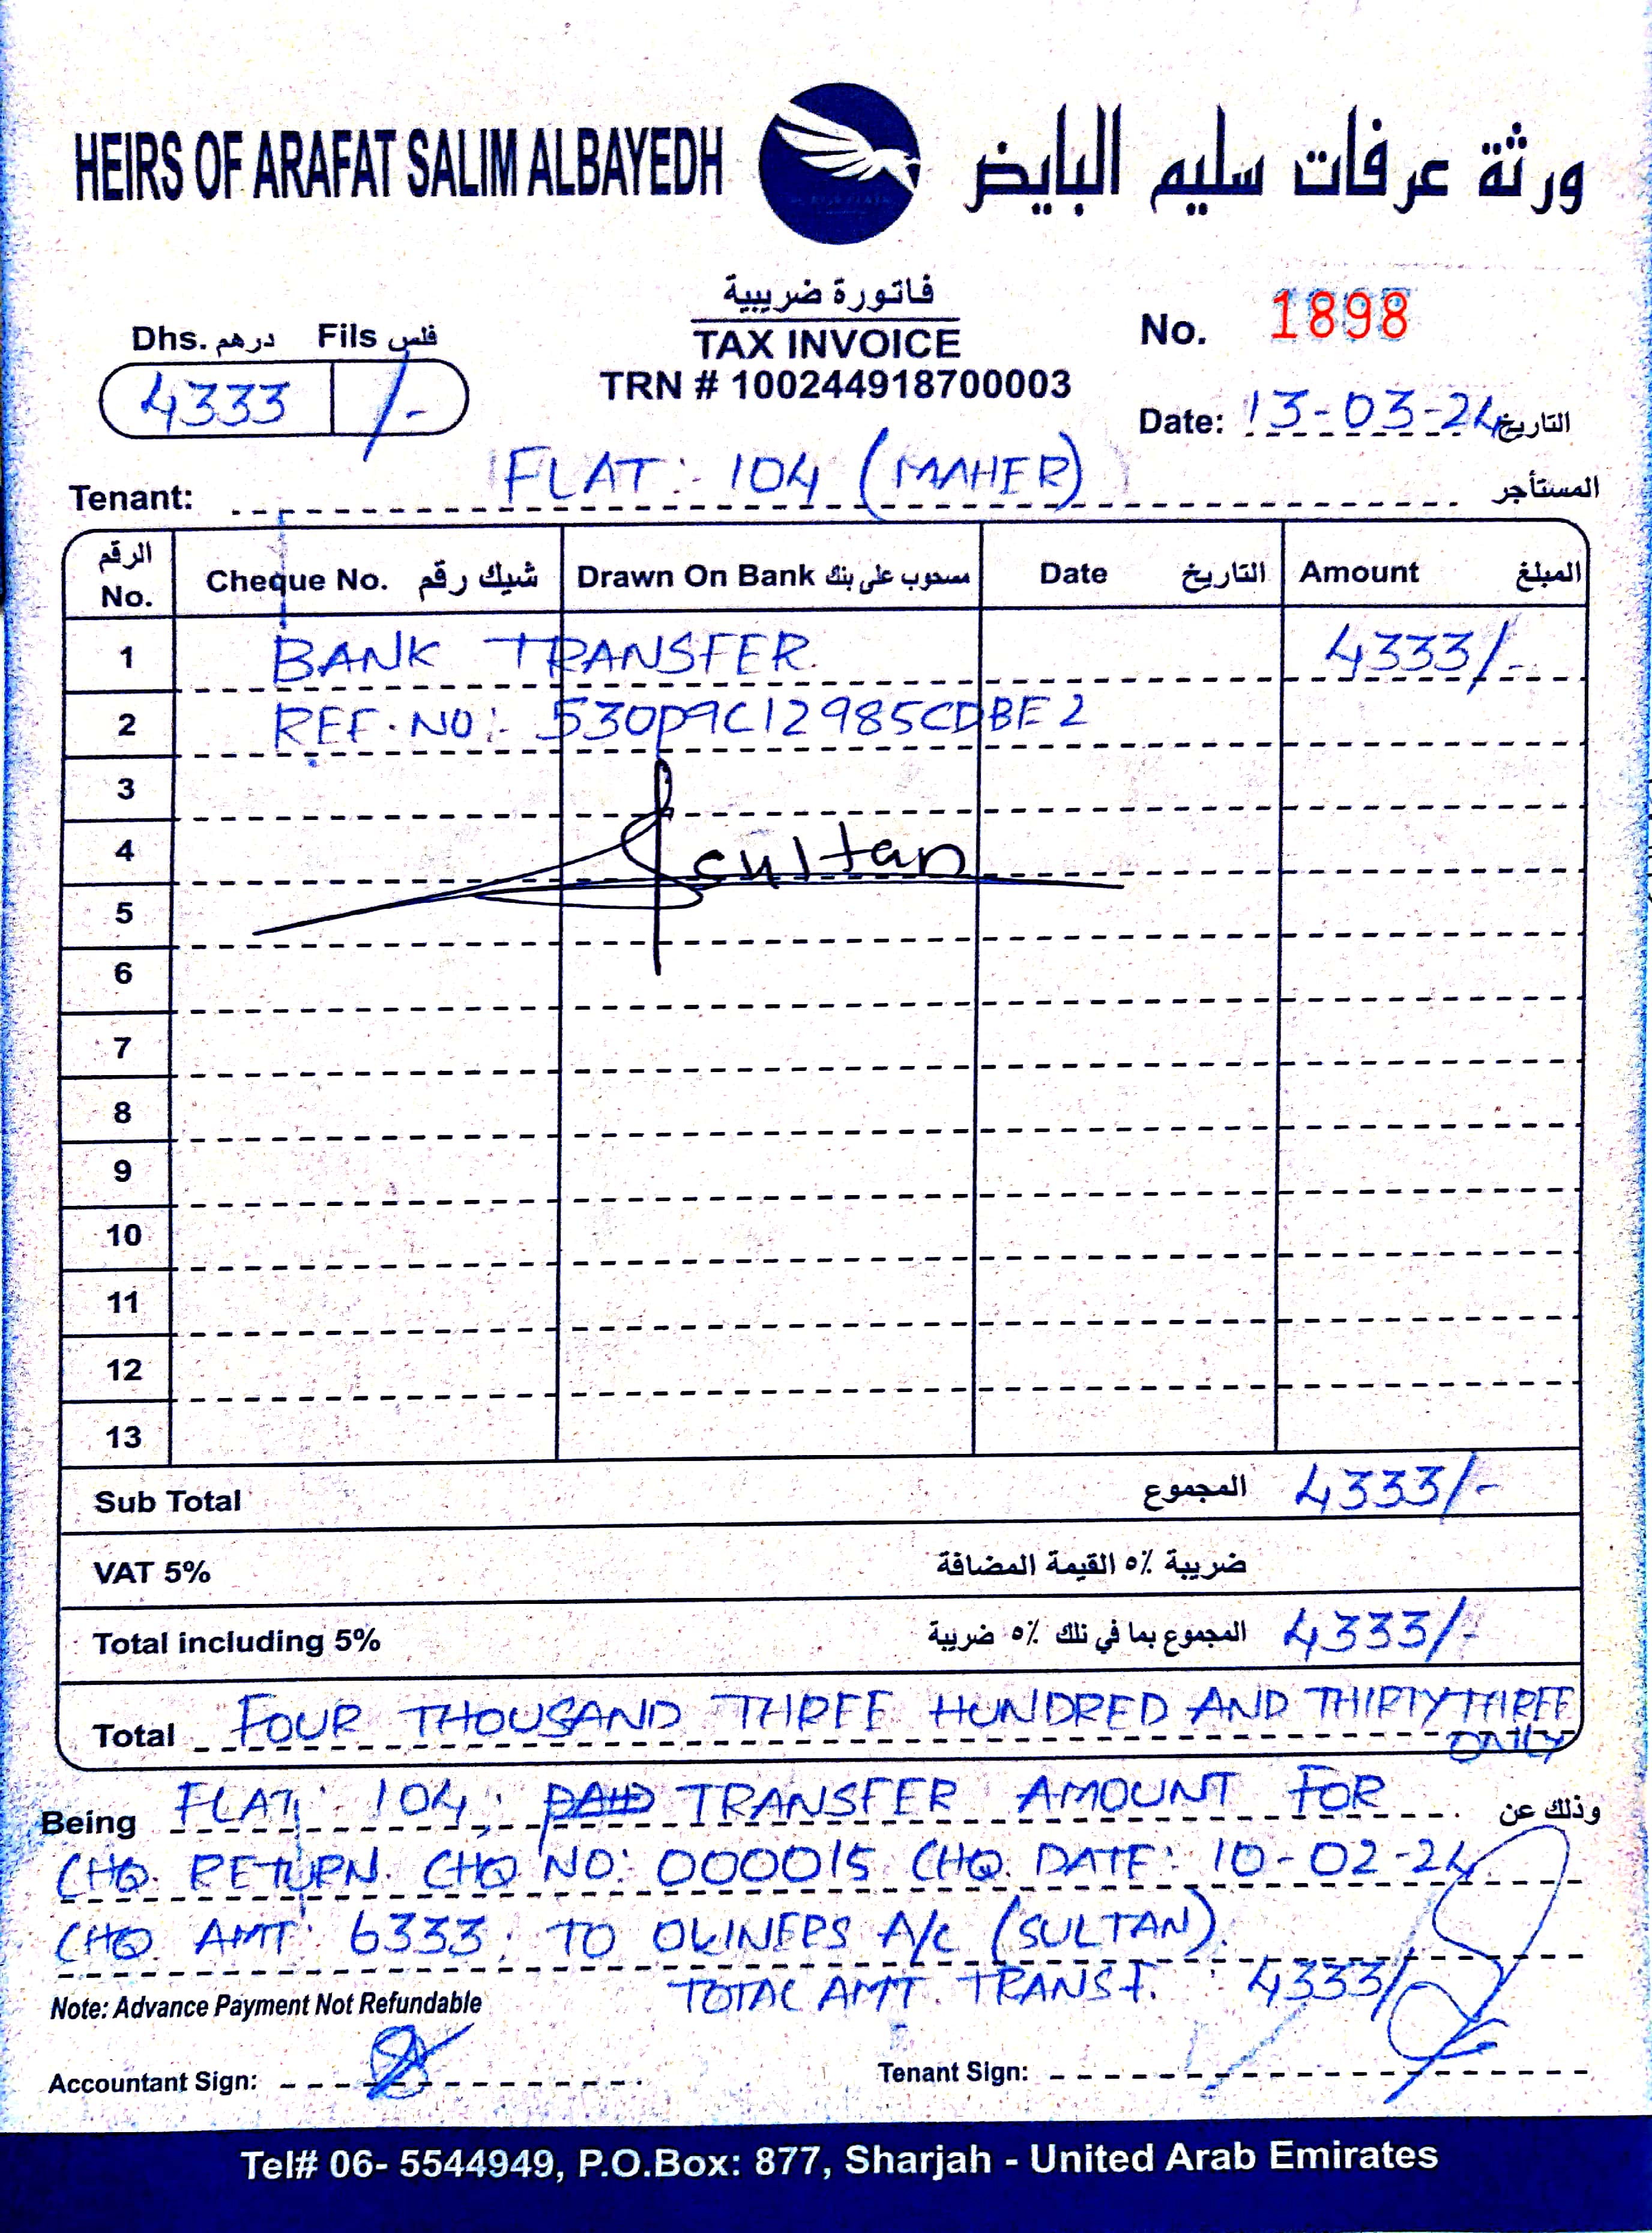 HEIRS OF ARAFAT SALIM ALBAYEDH ورثة عرفات سليم البايض
فاتورة ضريبية
TAX INVOICE
TRN # 100244918700003
Dhs. درهم Fils فلس
4333 /-
No. 1898
Date: 13-03-24 التاريخ
Tenant: FLAT: 104 (MAHER) المستأجر
الرقم No. Cheque No. شيك رقم Drawn On Bank مسحوب على بنك Date التاريخ Amount المبلغ
1 BANK TRANSFER 4333/-
2 REF. NO:- 530D9C12985CDBE2
3
4 sultan
5
6
7
8
9
10
11
12
13
Sub Total المجموع 4333/-
VAT 5% ضريبة ٥٪ القيمة المضافة
Total including 5% المجموع بما في ذلك ٥٪ ضريبة 4333/-
Total FOUR THOUSAND THREE HUNDRED AND THIRTY THREE
ONLY
Being FLAT: 104, PAID TRANSFER AMOUNT FOR وذلك عن
CHQ. RETURN. CHQ NO: 000015 CHQ. DATE: 10-02-24
CHQ AMT: 6333. TO OWNERS A/C (SULTAN).
TOTAL AMT. TRANSF. : 4333/-
Note: Advance Payment Not Refundable
Accountant Sign: Tenant Sign:
Tel# 06- 5544949, P.O.Box: 877, Sharjah - United Arab Emirates